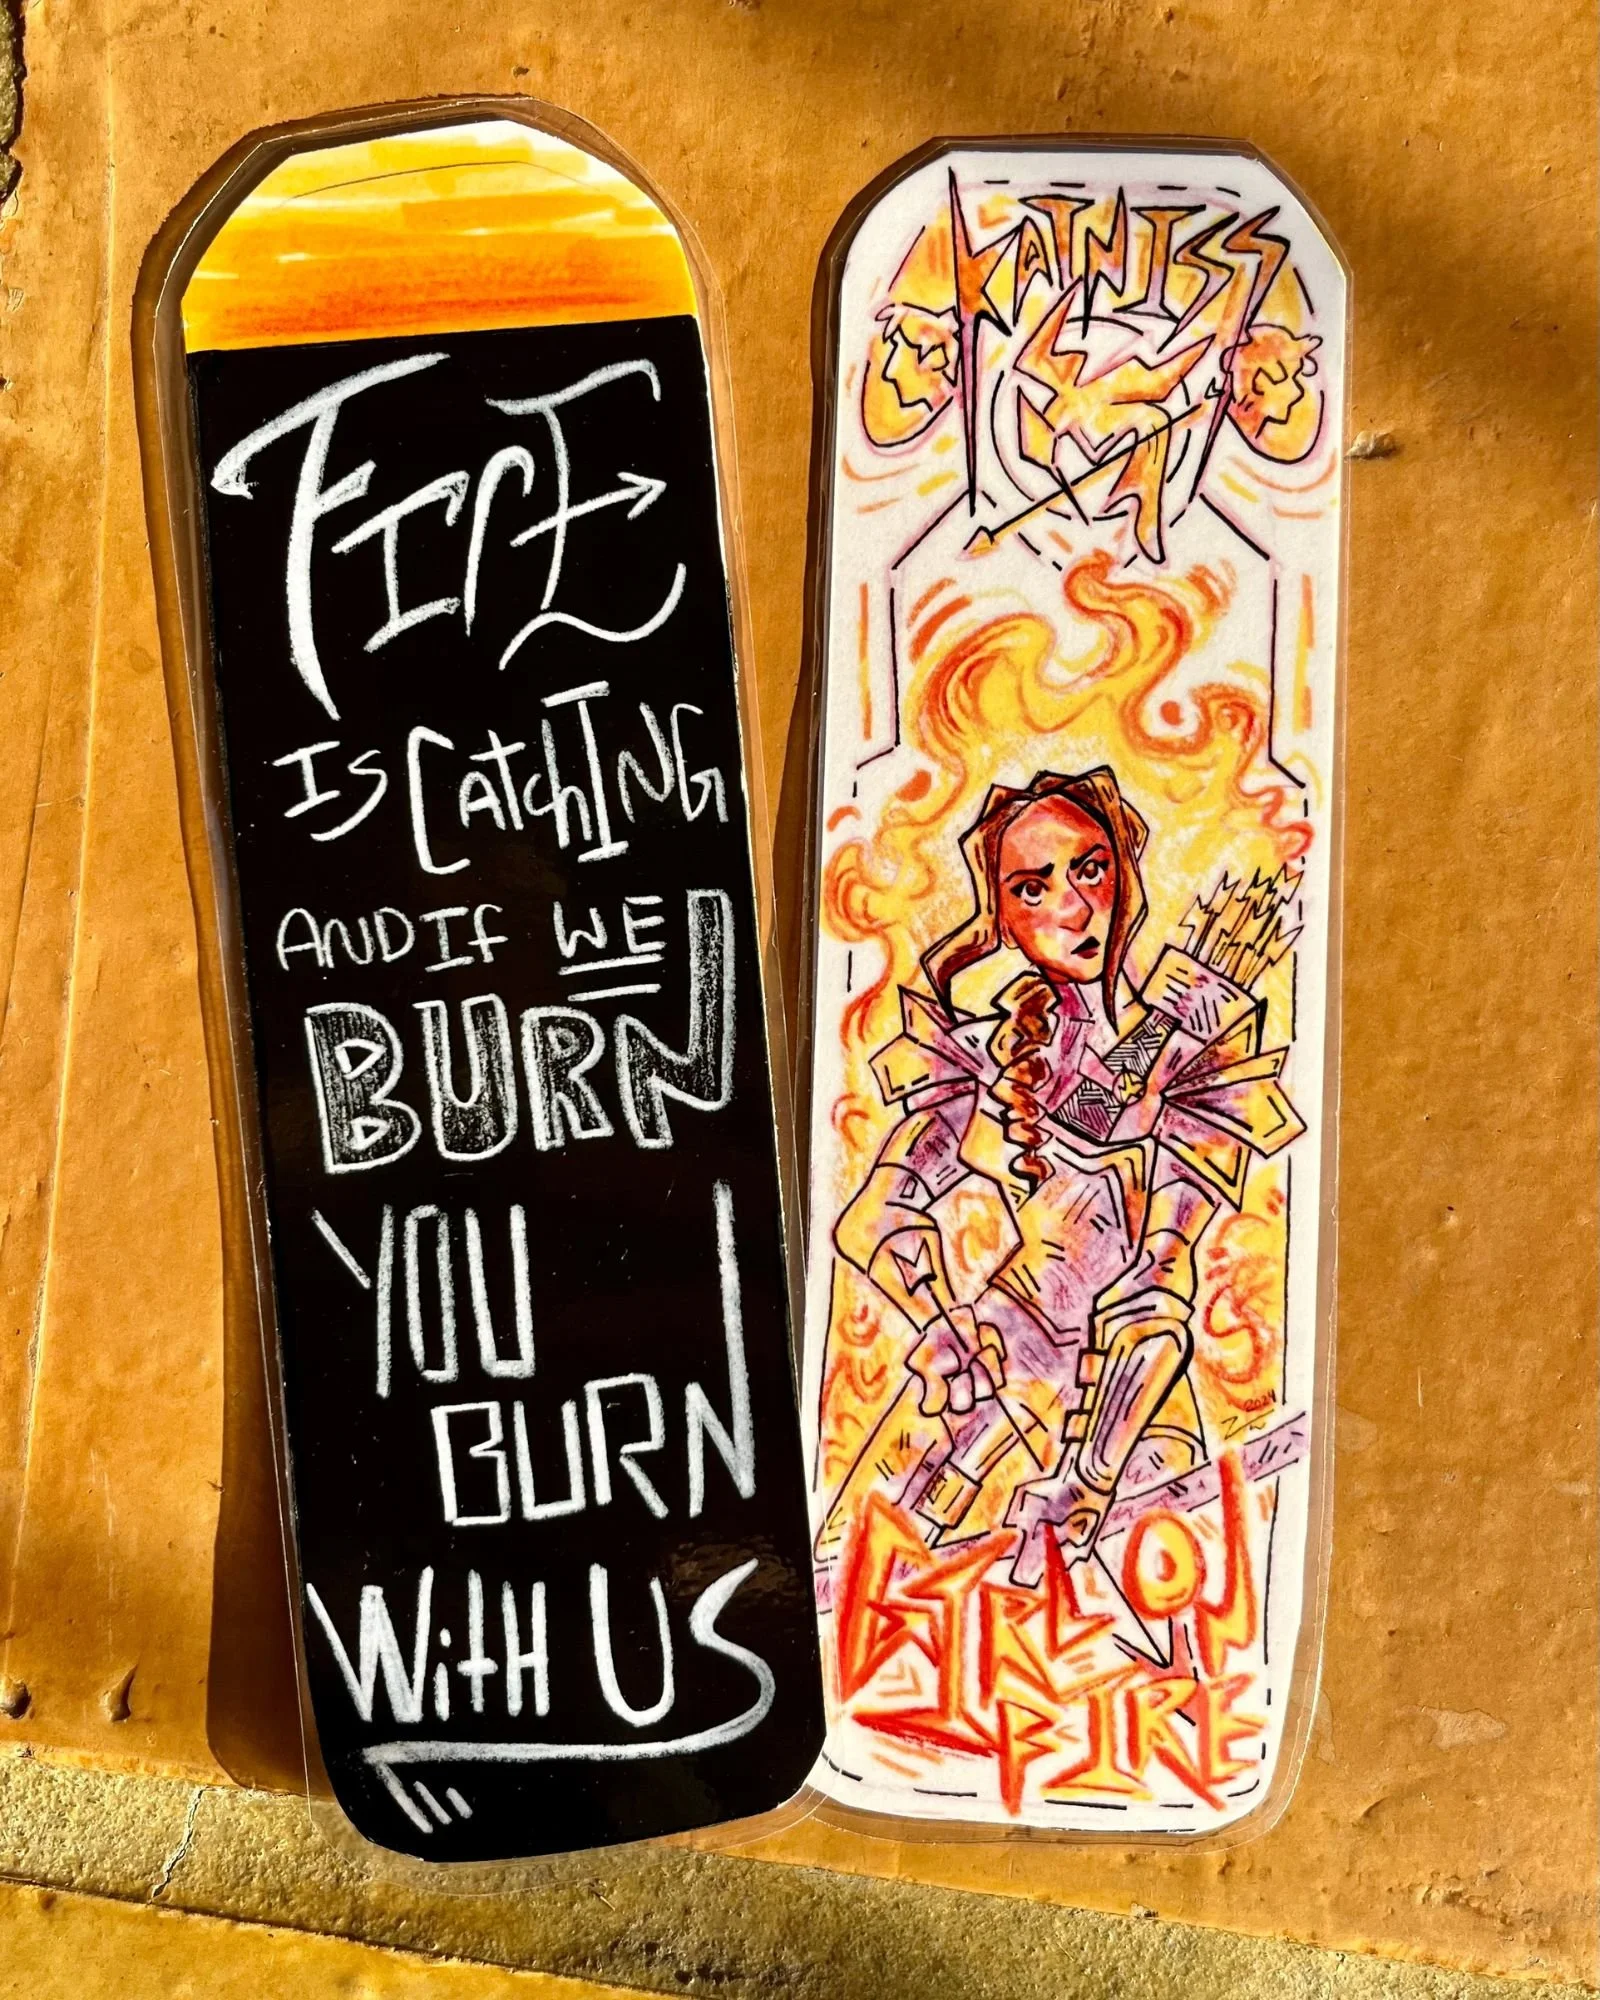 FIrE
IS CatchING
AND If WE
BURN
YOU
BURN
With US
KATNISS
2024
GIRL ON
FIRE